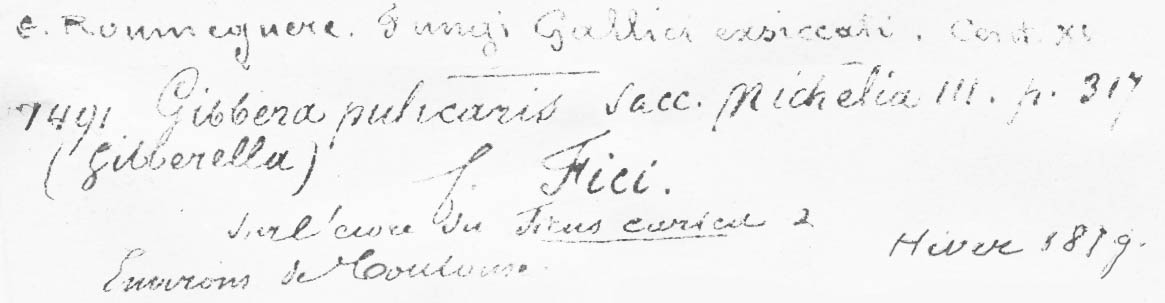 C. Roumeguere. Fungi Gallici exsiccati. Cent. XV
7491 Gibbera pulicaris Sacc. Michelia III. p. 317
(Gibberella)
f. Fici.
Sur l'écorce du Ficus carica
Environs de Toulouse.
Hiver 1879.